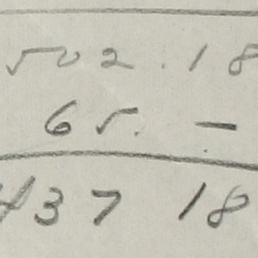 502.18
65. —
437 18